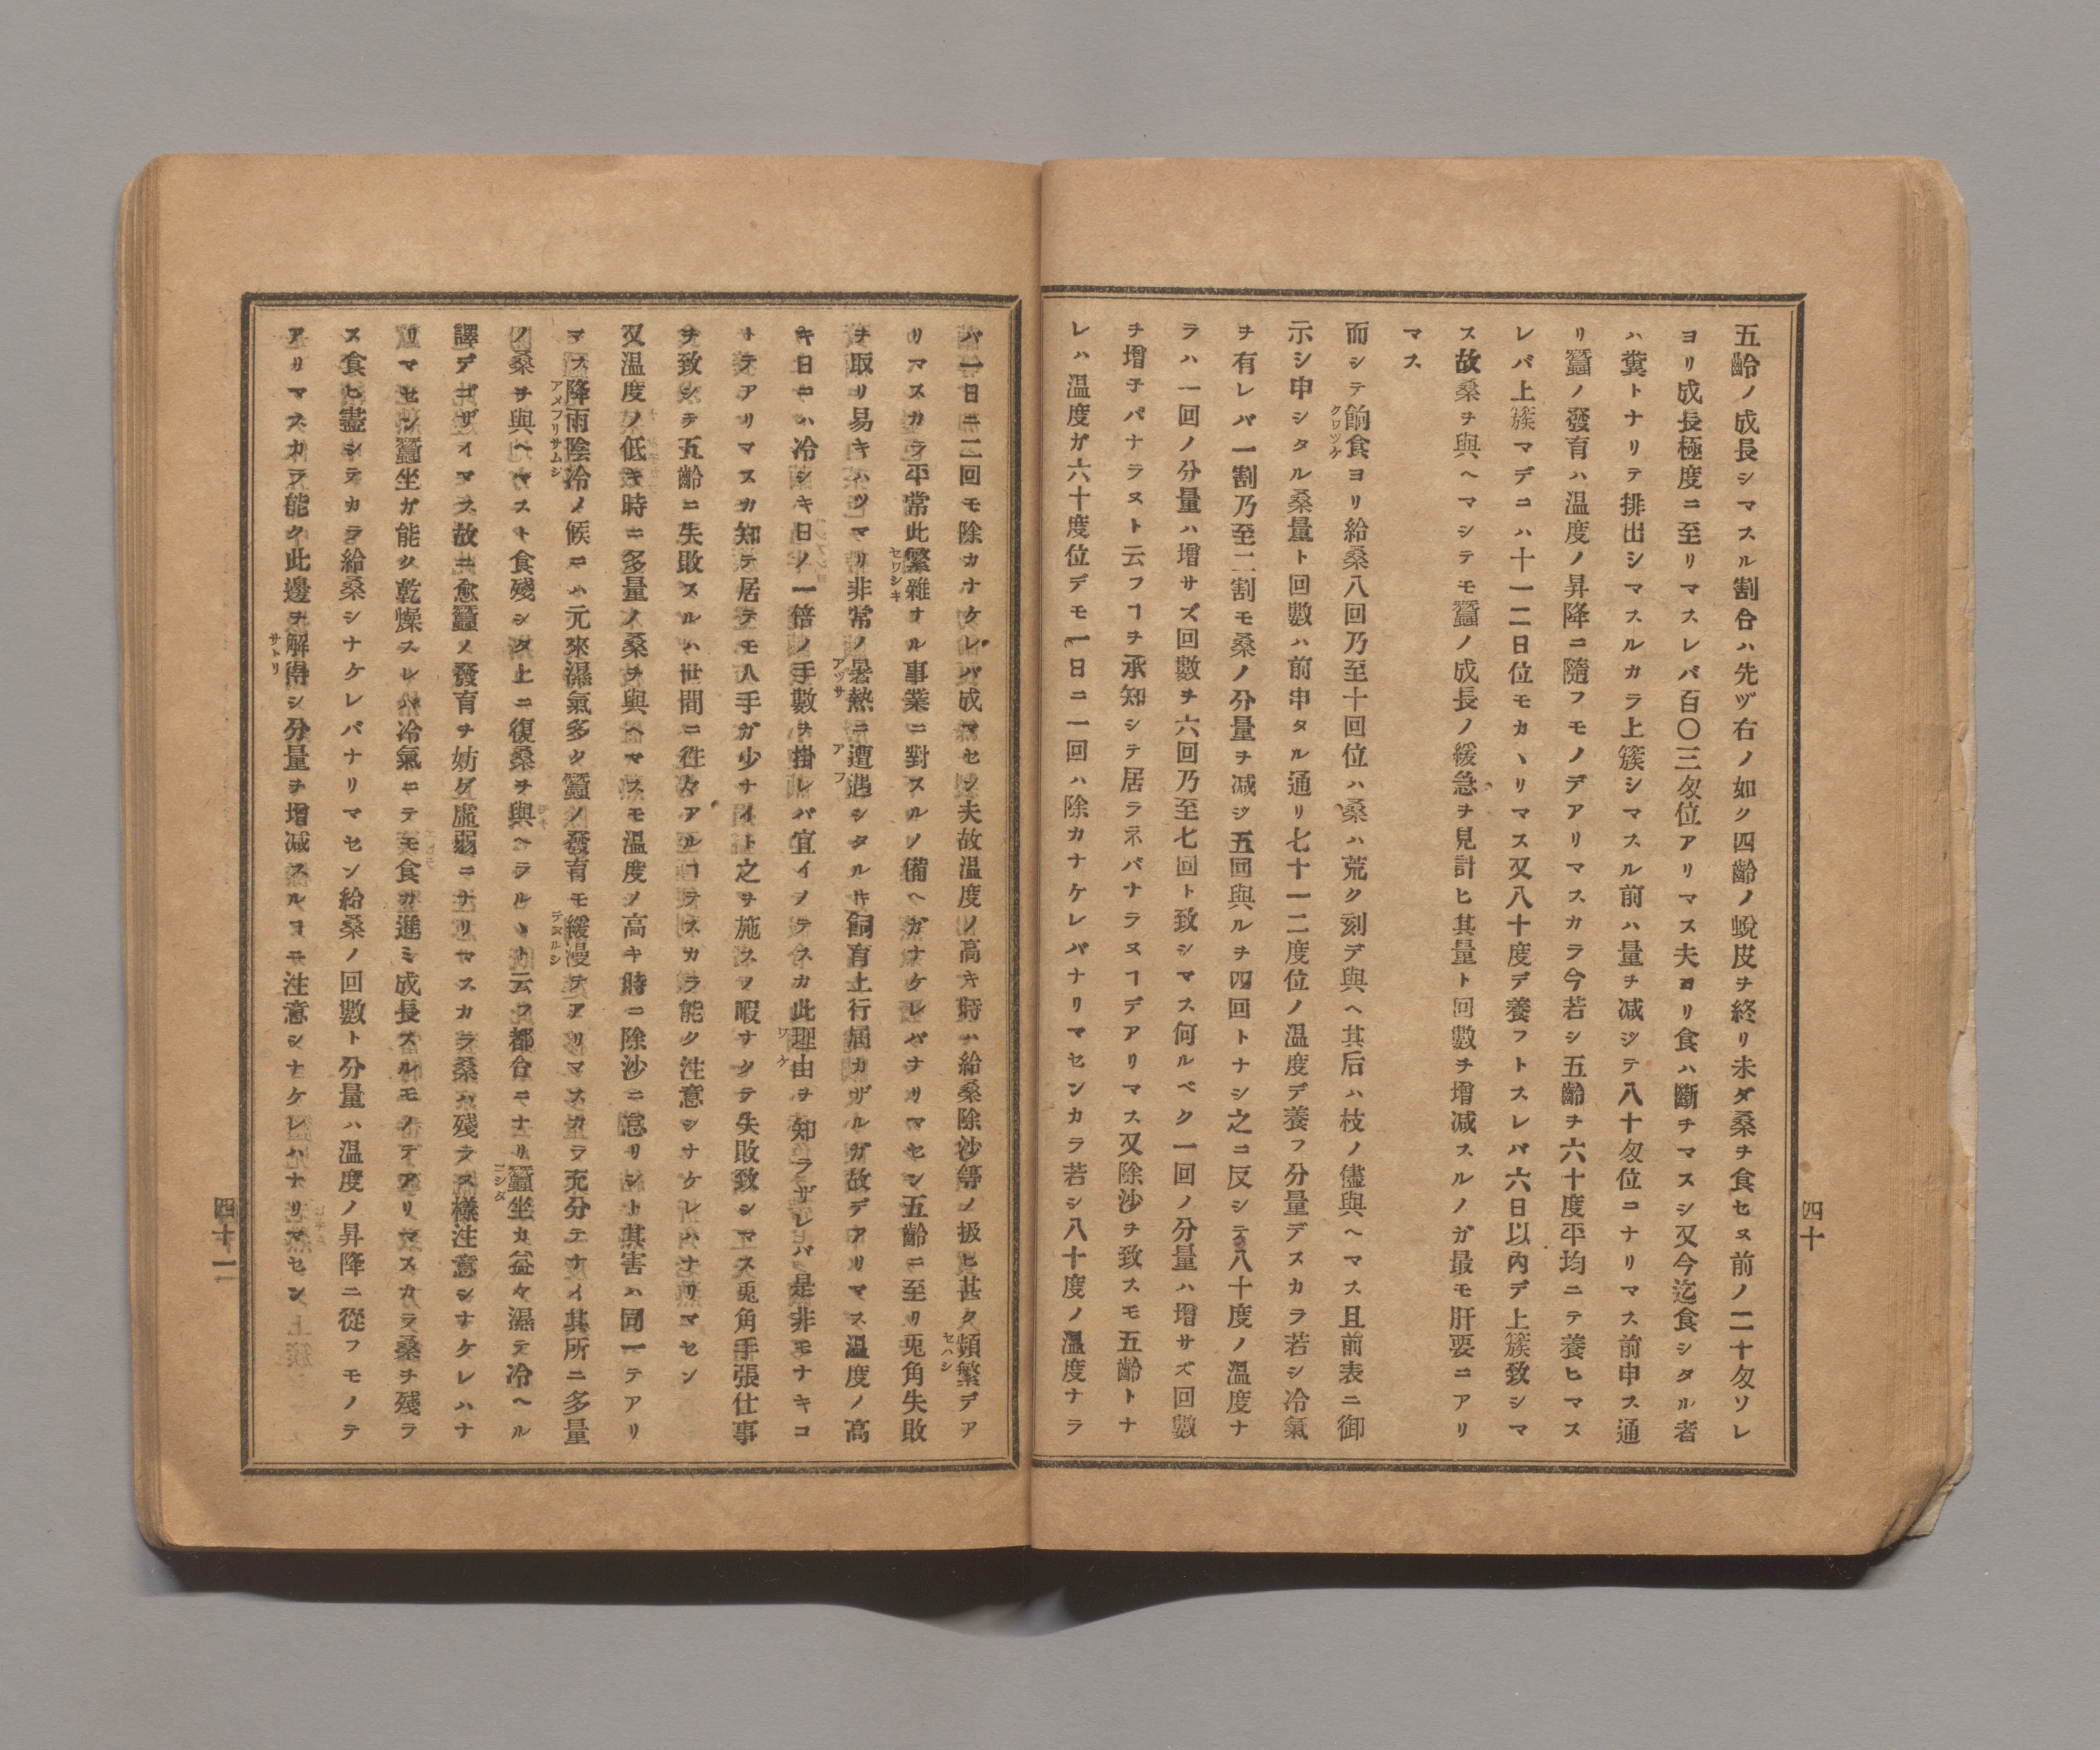 五齡ノ成長シマスル割合ハ先ヅ右ノ如ク四齡ノ蛻皮ヲ終リ未ダ桑ヲ食セヌ前ノ二十匁ソレ
ヨリ成長極度ニ至リマスレバ百〇三匁位アリマス夫ヨリ食ハ斷チマスシ又今迄食シタル者
ハ糞トナリテ排出シマスルカラ上簇シマスル前ハ量ヲ減ジテ八十匁位ニナリマス前申ス通
リ蠶ノ發育ハ温度ノ昇降ニ隨フモノデアリマスカラ今若シ五齡ヲ六十度平均ニテ養ヒマス
レバ上簇マデニハ十一二日位モカヽリマス又八十度デ養フトスレバ六日以內デ上簇致シマ
ス故桑ヲ與ヘマシテモ蠶ノ成長ノ緩急ヲ見計ヒ其量ト回數ヲ增減スルノガ最モ肝要ニアリ
マス
而シテ餉食ヨリ給桑八回乃至十回位ハ桑ハ荒ク刻デ與ヘ其后ハ枝ノ儘與ヘマス且前表ニ御
クワツケ
示シ申シタル桑量ト回數ハ前申タル通リ七十一二度位ノ温度デ養フ分量デスカラ若シ冷氣
ヲ有レバ一割乃至二割モ桑ノ分量ヲ減ジ五回與ルヲ四回トナシ之ニ反シテ八十度ノ温度ナ
ラハ一回ノ分量ハ增サズ回數ヲ六回乃至七回ト致シマス何ルベク一回ノ分量ハ增サズ回數
ヲ增子バナラヌト云フヿヲ承知シテ居ラネバナラヌヿデアリマス又除沙ヲ致スモ五齡トナ
レハ温度ガ六十度位デモ一日ニ一回ハ除カナケレバナリマセンカラ若シ八十度ノ温度ナラ
四十
バ一日ニ二回モ除カナケレバ成マセン夫故温度ノ高キ時ハ給桑除沙等ノ扱ヒ甚ク頻繁デア
セハシ
リマスカラ平常此繁雜ナル事業ニ對スルノ備ヘガナケレバナリマセン五齡ニ至リ兎角失敗
セワシキ
ヲ取リ易キハツマリ非常ノ暑熱ニ遭遇シタルキ飼育上行屆カザルガ故デアリマス温度ノ高
アツサ
アフ
キ日ニハ冷シキ日ノ一倍ノ手數ヲ掛レバ宜イノテスカ此理由ヲ知ラザレバ是非モナキコ
ワケ
トテアリマスカ知テ居テモ人手ガ少ナイト之ヲ施スノ暇ナクテ失敗致シマス兎角手張仕事
ヲ致シテ五齡ニ失敗スルハ世間ニ徃々アルコテスカラ能ク注意シナケレハナリマセン
又温度ノ低キ時ニ多量ノ桑ヲ與ヘマスモ温度ノ高キ時ニ除沙ニ怠リシト其害ハ同一テアリ
マス降雨陰冷ノ候ニハ元來濕氣多ク蠶ノ發育モ緩漫テアリマスカラ充分テナイ其所ニ多量
アメフリサムシ
テヌルシ
ノ桑ヲ與ヘマスト食殘シタ上ニ復桑ヲ與ヘラルヽト云フ都合ニナリ蠶坐カ益々濕テ冷ヘル
コシダ
譯デゴザイマス故ニ愈蠶ノ發育ヲ妨ゲ虛弱ニナリマスカラ桑ハ殘ラヌ樣注意シナケレハナ
リマセン蠶坐ガ能ク乾燥スレハ冷氣ニテモ食カ進ミ成長スルモノデアリマスカラ桑ヲ殘ラ
ス食ヒ盡シテカラ給桑シナケレバナリマセン給桑ノ回數ト分量ハ温度ノ昇降ニ從フモノテ
アリマスカラ能ク此邊ヲ解得シ分量ヲ增减スルヨニ注意シナケレハナリマセン
サトリ
四十一